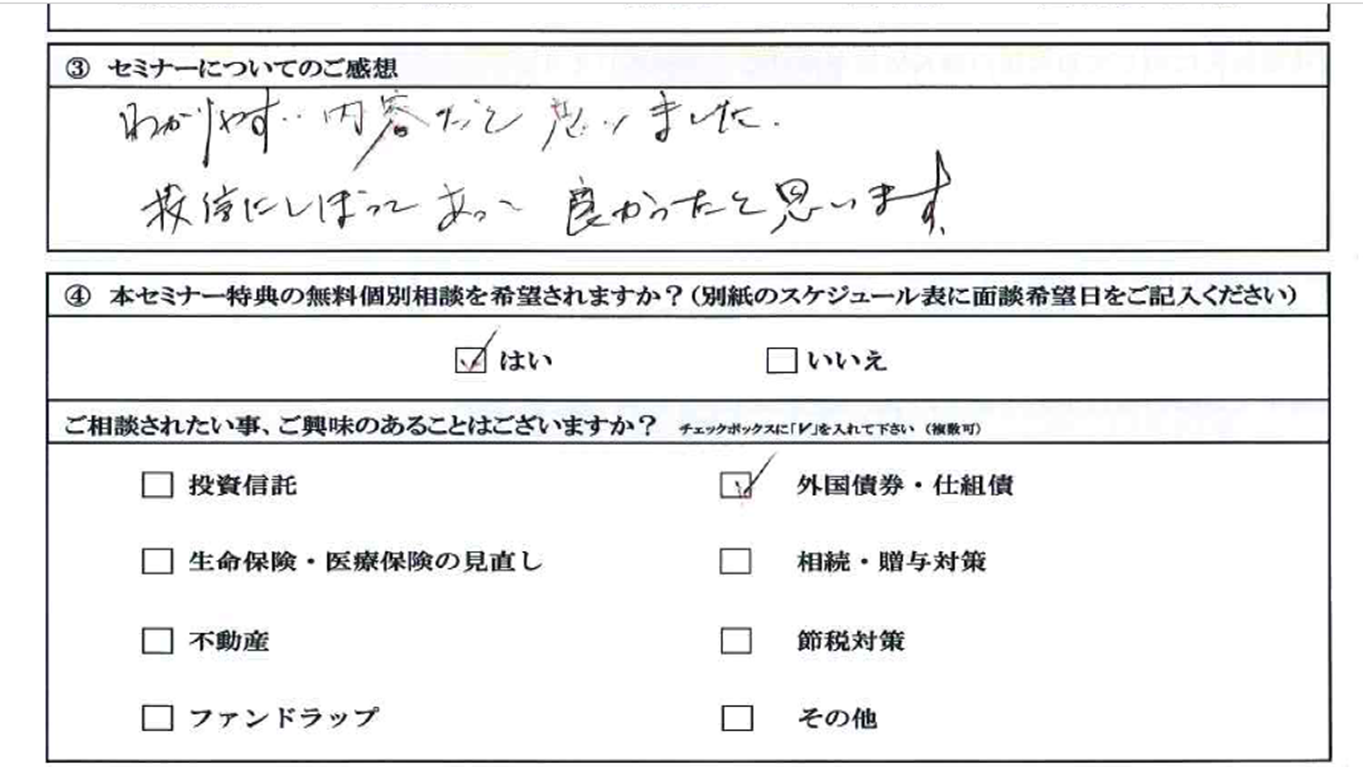 ③ セミナーについてのご感想
わかりやすい内容だと思いました.
投信にしぼってあって良かったと思います.
④ 本セミナー特典の無料個別相談を希望されますか?(別紙のスケジュール表に面談希望日をご記入ください)
はい いいえ
ご相談されたい事、ご興味のあることはございますか? チェックボックスに「V」を入れて下さい (複数可)
投資信託 外国債券・仕組債
生命保険・医療保険の見直し 相続・贈与対策
不動産 節税対策
ファンドラップ その他